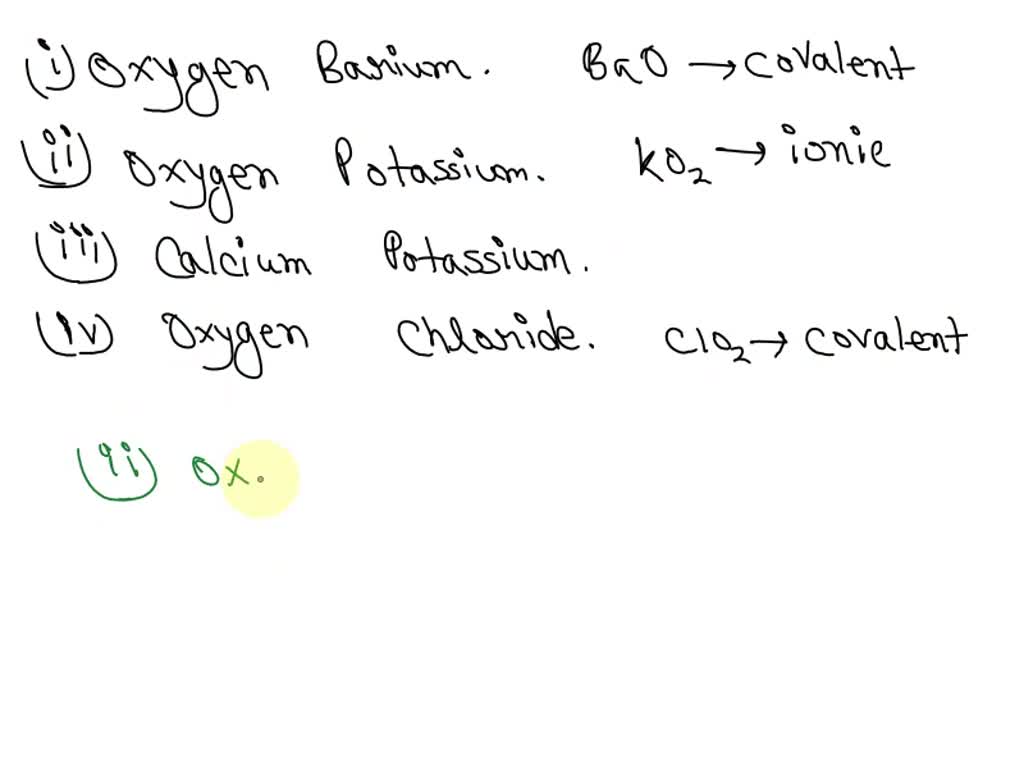 (i) Oxygen Barium. BaO → covalent
(ii) Oxygen Potassium. KO₂ → ionic
(iii) Calcium Potassium.
(iv) Oxygen Chloride. ClO₂ → covalent
(ii) Ox.